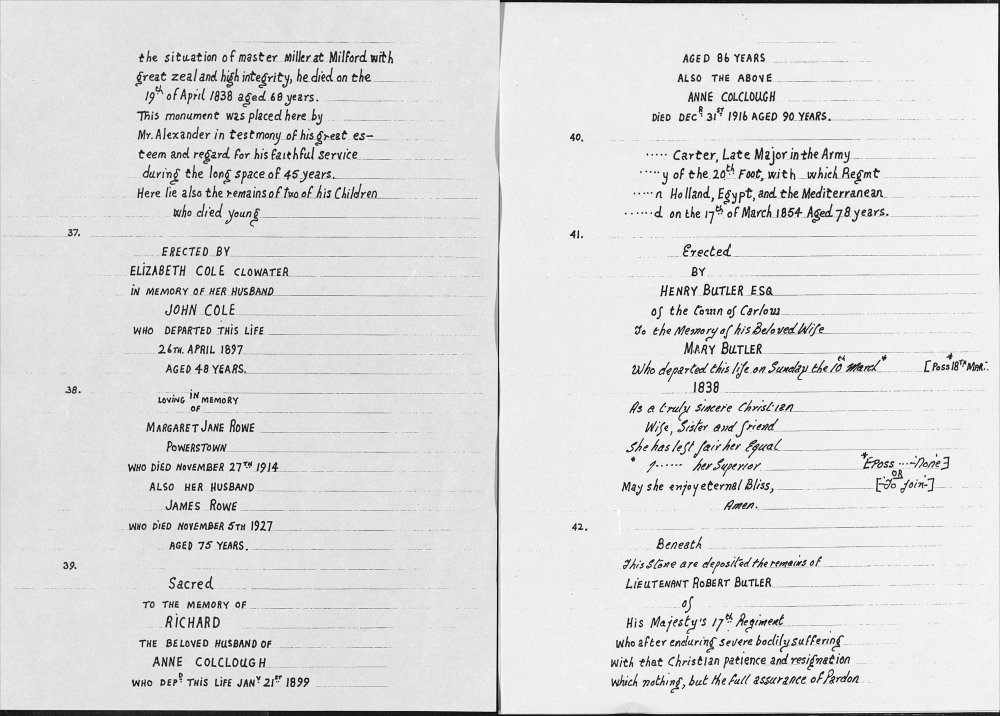 the situation of master miller at Milford with
great zeal and high integrity, he died on the
19th of April 1838 aged 68 years.
This monument was placed here by
Mr. Alexander in testmony of his great es-
teem and regard for his faithful service
during the long space of 45 years.
Here lie also the remains of two of his Children
who died young
37.
ERECTED BY
ELIZABETH COLE CLOWATER
IN MEMORY OF HER HUSBAND
JOHN COLE
WHO DEPARTED THIS LIFE
26TH. APRIL 1897
AGED 48 YEARS.
38.
LOVING IN MEMORY
OF
MARGARET JANE ROWE
POWERSTOWN
WHO DIED NOVEMBER 27TH 1914
ALSO HER HUSBAND
JAMES ROWE
WHO DIED NOVEMBER 5TH 1927
AGED 75 YEARS.
39.
Sacred
TO THE MEMORY OF
RICHARD
THE BELOVED HUSBAND OF
ANNE COLCLOUGH
WHO DEPD THIS LIFE JANY 21ST 1899
AGED 86 YEARS
ALSO THE ABOVE
ANNE COLCLOUGH
DIED DECR 31ST 1916 AGED 90 YEARS.
40.
..... Carter, Late Major in the Army
.....y of the 20th Foot, with which Regmt
.....n Holland, Egypt, and the Mediterranean
......d on the 17th of March 1854 Aged 78 years.
41.
Erected
BY
HENRY BUTLER ESQ
of the town of Carlow
To the Memory of his Beloved Wife
MARY BUTLER
Who departed this life on Sunday the 10th March* [*Poss 18TH MAR:
1838
As a truly sincere Christian
Wife, Sister and friend
She has left fair her Equal
* ?...... her Superior *[Poss ....None]
OR
May she enjoy eternal Bliss, [-To join-]
Amen.
42.
Beneath
This Stone are deposited the remains of
LIEUTENANT ROBERT BUTLER
of
His Majesty's 17th Regiment
who after enduring severe bodily suffering
with that Christian patience and resignation
which nothing, but the full assurance of Pardon